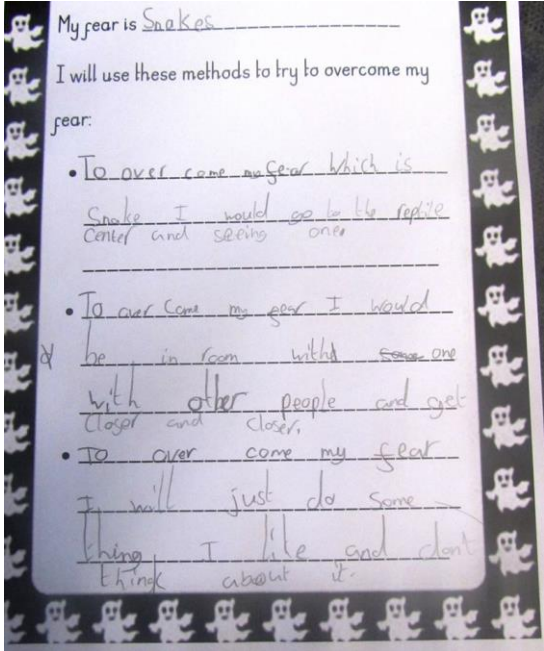 My fear is Snakes
I will use these methods to try to overcome my
fear:
• To over come my fear which is
Snake I would go to the reptile
center and seeing one.
• To over come my fear I would
be in room with one
with other people and get
closer and closer.
• To over come my fear
I will just do some
thing I like and dont
think about it.